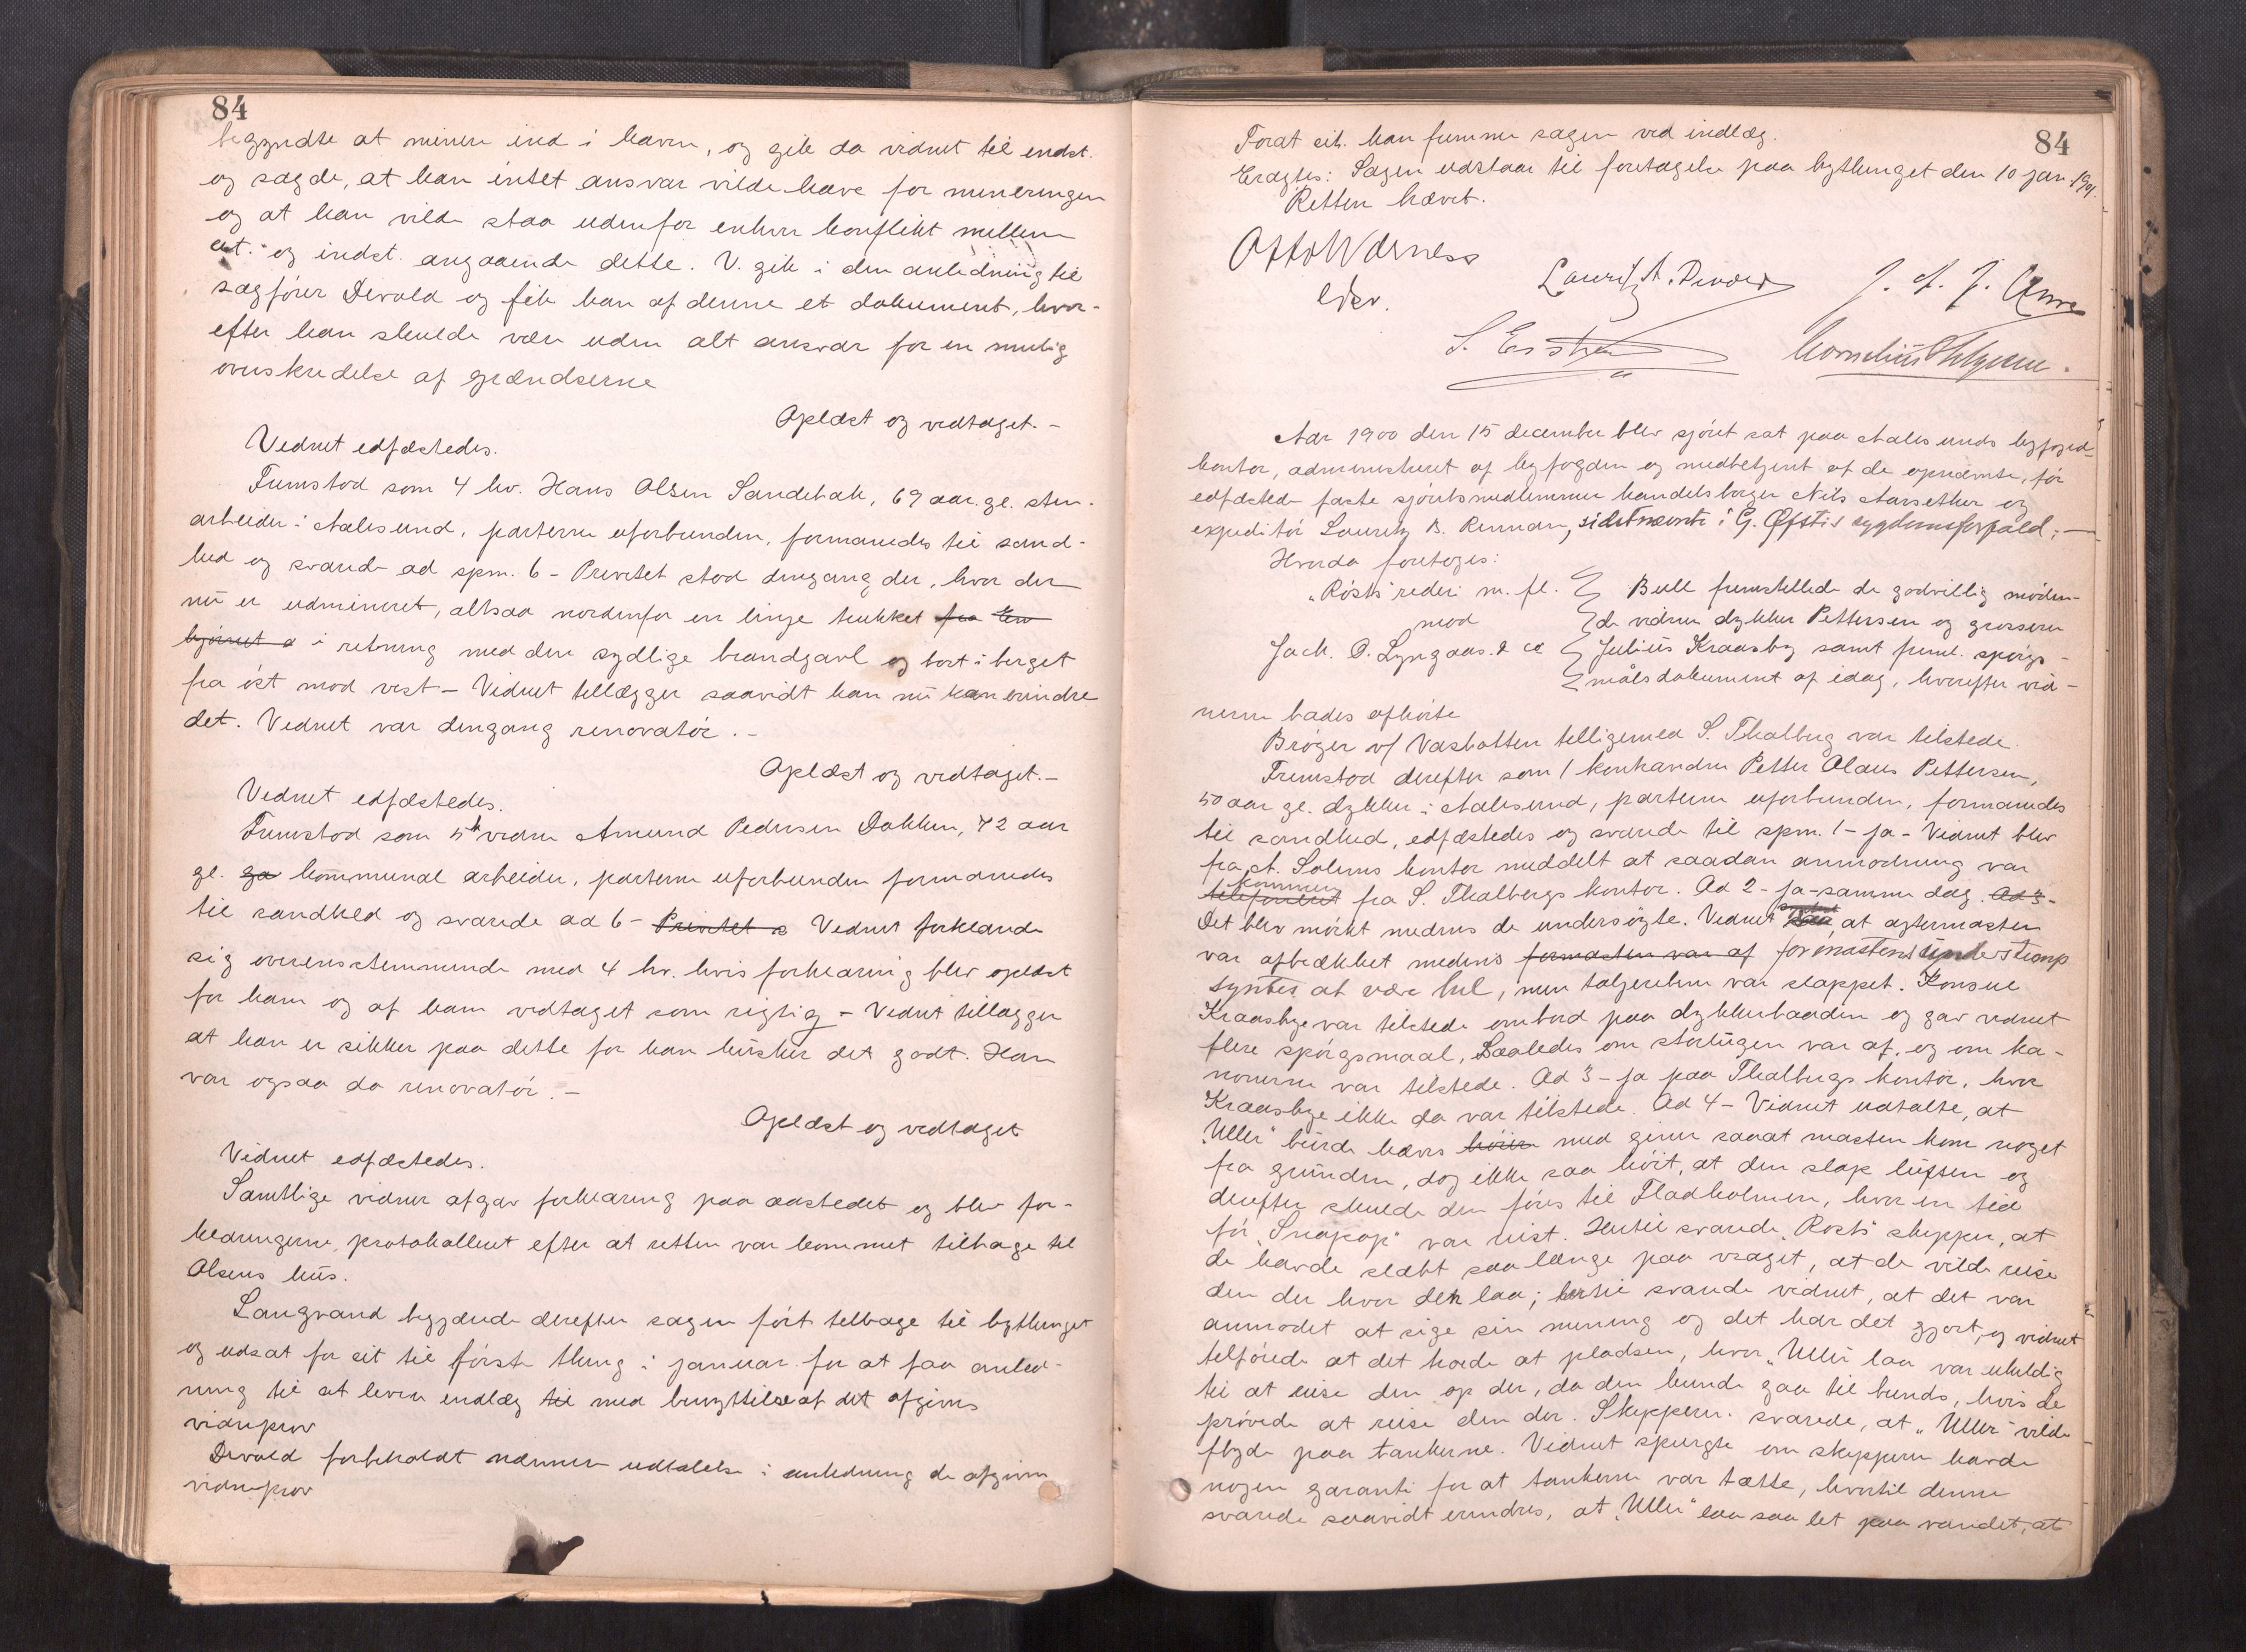 84
begyndte at minere ind i haven, og gik da vidnet til indst.
og sagde, at han intet ansvar vilde have for mineringen
og at han vilde staa udenfor enhver konflikt mellem
cit. og indst. angaaende dette. V. gik i den anledning til
sagfører Devold og fik han af denne et dokument, hvor-
efter han skulde være uden alt ansvar for en mulig
overskridelse af grændserne
Oplæst og vedtaget.-
Vidnet edfæstedes.
Fremstod som 4 hv. Hans Olsen Sandebak, 69 aar. gl. sten-
arbeider i Aalesund, parterne uforbunden, formanedes til sand-
hed og svarede ad spm. 6 - Privetet stod dengang der, hvor der
nu er udmineret, altsaa nordenfor en linje trukket fra
hjørnet a i retning med den sydlige brandgavl og bort i berget
fra øst mod vest - Vidnet tillægger saavidt han nu kan erindre
det. Vidnet var dengang renovatør.-
Oplæst og vedtaget.-
Vidnet edfæstedes.
Fremstod som 5te vidne Amund Pedersen Dokken, 72 aar
gl. ga kommunal arbeider, parterne uforbunden formanedes
til sandhed og svarede ad 6 - Privetet s Vidnet forklarede
sig overensstemmende med 4 hv. hvis forklaring blev oplæst
for ham og af ham vedtaget som rigtig - Vidnet tillægger
at han er sikker paa dette for han husker det godt. Han
var ogsaa da renovatør.-
Oplæst og vedtaget
Vidnet edfæstedes.
Samtlige vidner afgav forklaring paa aastedet og blev for-
klaringerne protokolleret efter at retten var kommet tilbage til
Olsens hus.
Langvand begjærede derefter sagen ført tilbage til bythinget
og udsat for sit til første thing i januar for at faa anled-
ning til at levere indlæg til med benyttelse af det afgivne
vidneprov
Devold forbeholdt nærmere udtalelse i anledning de afgivne
vidneprov
84
Forat cit. kan fremme sagen ved indlæg.
Eragtes: Sagen udstaar til foretagelse paa bythinget den 10 jan 1901.
Retten hævet.
Otto Warness
edsv.
Lauritz A.
J. A. J.
Aar 1900 den 15 december blev sjøret sat paa Aalesunds byfoged-
kontor, administreret af byfogden og medbetjent af de opnævnte, før
edfæstede faste sjøretsmedlemmer handelsborger Nils Aarsether og
expeditør Lauritz B. Renman, sidstnævnte i G. Øfstis sygdomsforfald;-
Hvorda foretoges:
"Røsts" rederi m. fl.
mod
Jach. O. Lyngaas. & co
Bull fremstillede de godvillig møden-
de vidner dykker Pettersen og grosserer
Julius Kraasby samt freml. spørgs-
målsdokument af idag, hvorefter vid-
nerne bades afhørte
Brøger v/ Vasbotten tilligemed S. Thalberg var tilstede
Fremstod derefter som 1 konkandre Petter Olaus Pettersen,
50 aar gl. dykker i Aalesund, parterne uforbunden, formanedes
til sandhed, edfæstedes og svarede til spm. 1 - ja - Vidnet blev
fra A. Solems kontor meddelt at saadan anmodning var
kommen
telefoneret fra S. Thalbergs kontor. Ad 2 - ja - samme dag. Ad 3-
Det blev mørkt medens de undersøgte. Vidnet saa at agtermasten
var afbrækket medens formasten var af formastens understump
syntes at være hel, men taljerebene var slappet. Konsul
Kraasbye var tilstede ombord paa dykkerbaaden og gav vidnet
flere spørgsmaal, saaledes om storlugen var af, og om ka-
nonerne var tilstede. Ad 3 - ja paa Thalbergs kontor, hvor
Kraasbye ikke da var tilstede. Ad 4 - Vidnet udtalte, at
"Uller" burde hæves høiere med giner saaat masten kom noget
fra grunden, dog ikke saa høit, at den slap luften og
derefter skulde den føres til Fladholmen, hvor en tid
før "Snapop" var reist. Hertil svarede "Røsts" skipper, at
de havde slæbt saa længe paa vraget, at de vilde reise
den der hvor den laa; hertil svarede vidnet, at det var
anmodet at sige sin mening og det har det gjort, og vidnet
tilføiede at det troede at pladsen, hvor "Uller" laa var uheldig
til at reise den op der, da den kunde gaa til bunds, hvis de
prøvede at reise den der. Skipperen svarede, at "Uller" vilde
flyde paa tankerne. Vidnet spurgte om skipperen havde
nogen garanti for at tankerne var tætte, hvortil denne
svarede saavidt erindres, at "Uller" laa saa let paa vandet, at